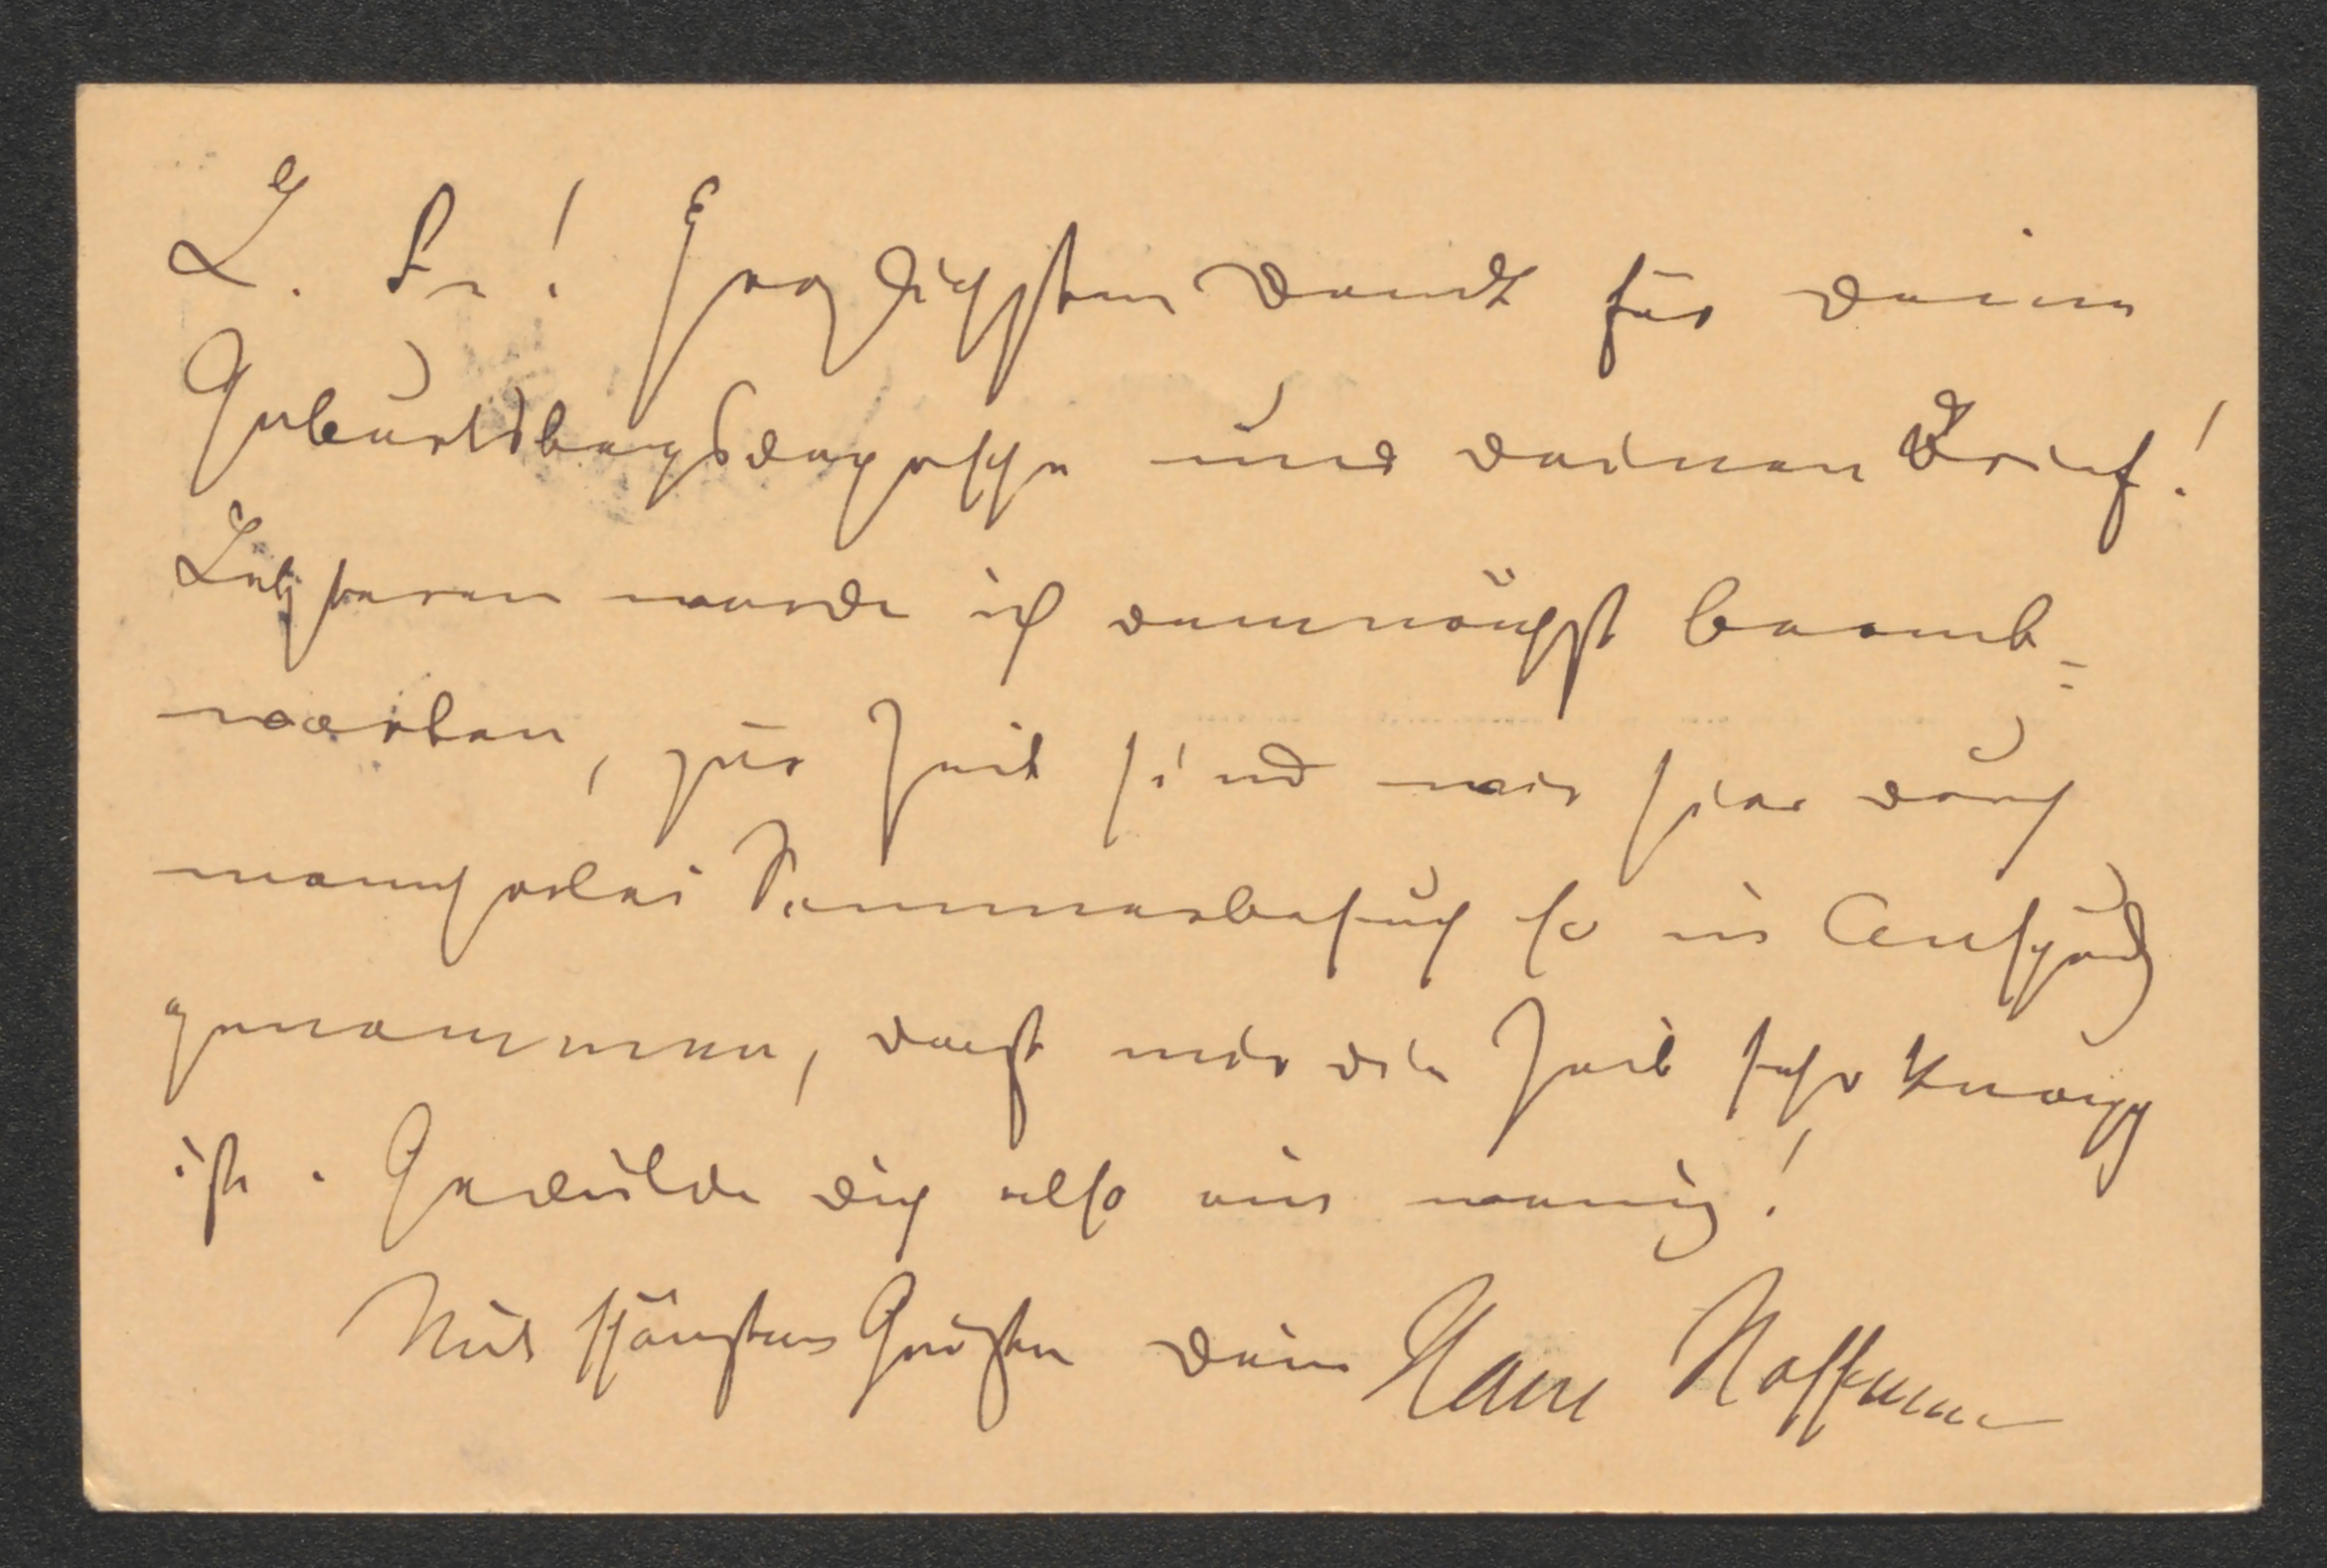 L. Fr! Herzlichsten Dank für deine
Geburtstagsdepesche und deinen Brief!
Letzteren werde ich demnächst beant=
worten, zur Zeit sind wir hier durch
mancherlei Sommerbesuch so in Anspruch
genommen, daß mir die Zeit sehr knapp
ist. Gedulde dich also ein wenig!
Mit schönsten Grüßen dein Hans Hoffmann